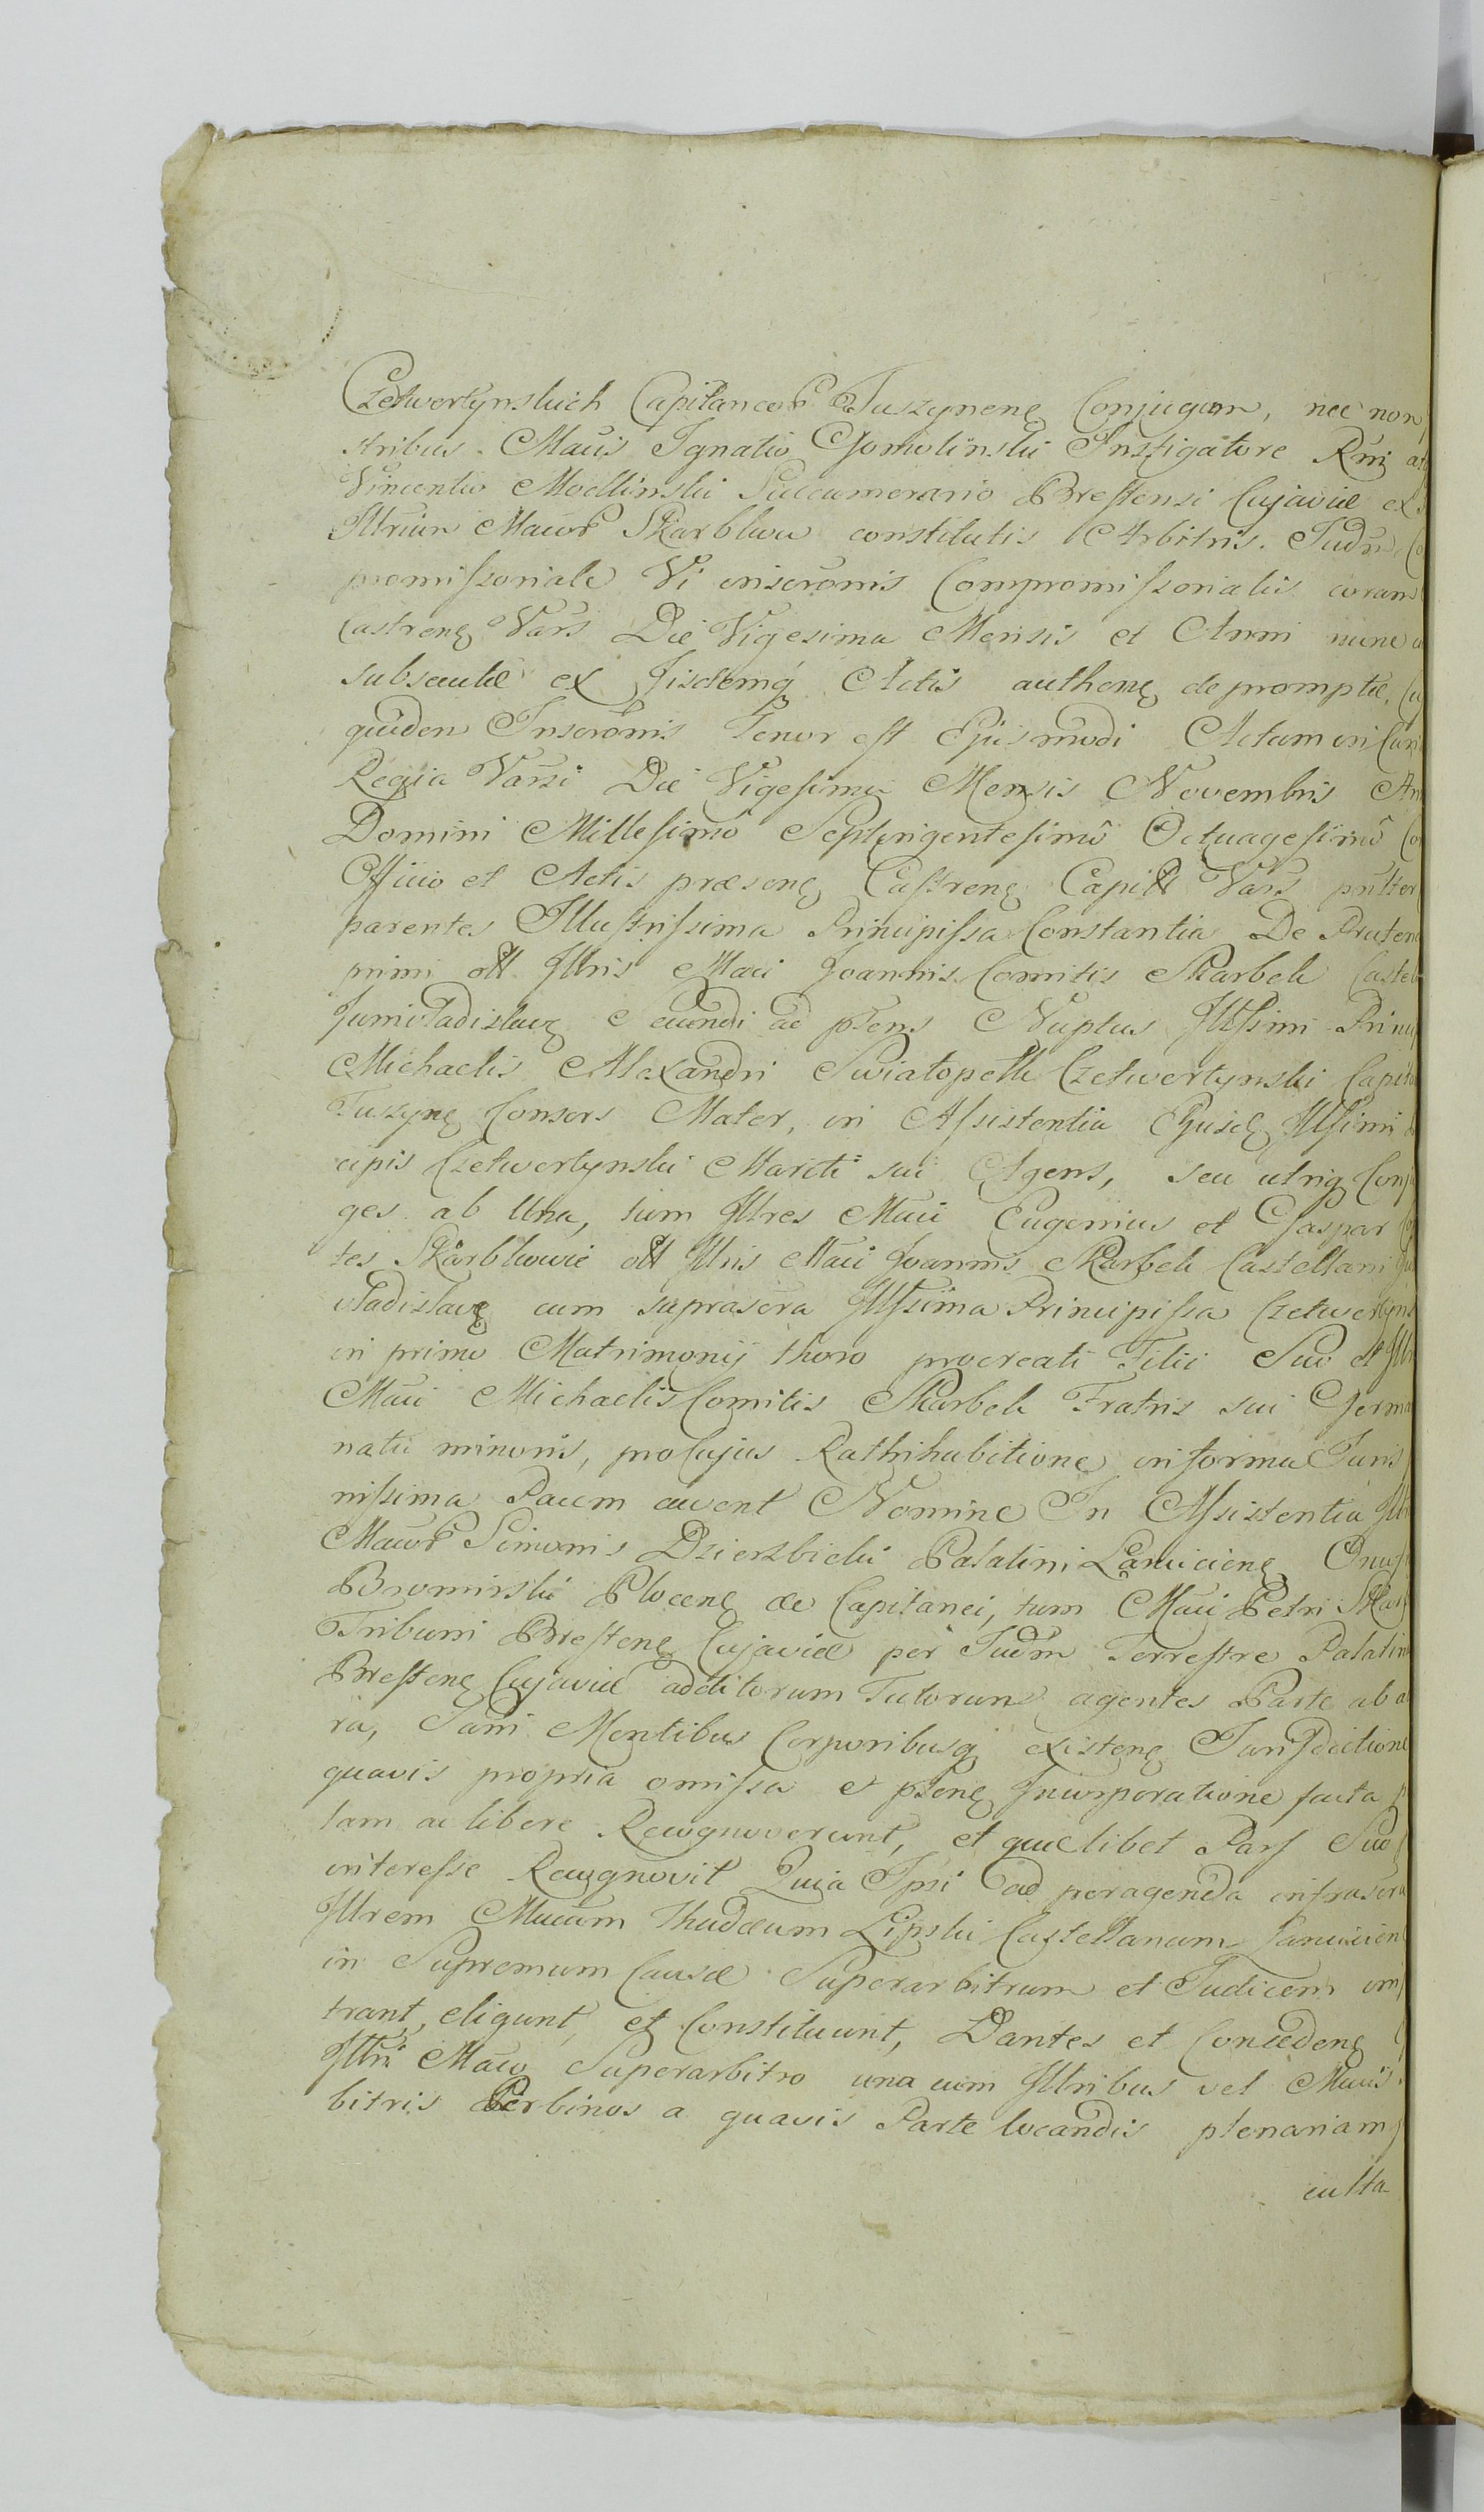 Czetwertynskich Capitaneor Tuszynens Conjugum, nec non
stribus Mäcis Ignatio Gomolinski Instigatore Rni
Vincentio Modlinski Succamerario Brestensi Cujaviæ ex
Illrium Macor Skarbkow constitutis Arbitris. Judm
promissoriale Vi inscrōnis Compromissorialis coram
Castrens Vars Die Vigesima Mensis et Anni nunc
subsecutæ ex Iisdemq Actis authens depromptæ, Cu
quidem Inscrōnis Tenor est Ejusmodi Actum in Curi
Regia Varsi Die Vigesima Mensis Novembris An
Domini Millesimo Septingentesimo Octuagesimo Co
Officio et Actis præsens Castrens Capitt Vars pnlter
parentes Illustrissima Principissa Constantia De Pruten
primi olt Illris Maci Joannis Comitis Skarbek Castel
Juniwladislaviens Secundi ad præns Nuptus Illssimi Princi
Michaelis Alexandri Swiatopelk Czetwertynski Capita
Tuszyns Consors Mater, in Assistentia Ejusd Illssimi
cipis Czetwertynski Mariti sui Agens, seu utriq Conju
ges ab Una, tum Illres Maci Eugenius et Gaspar
tes Skarbkowie olt Illris Maci Joannis Skarbek Castellani
wladislavs cum suprascra Illssima Principissa Czetwertyns
in primo Matrimonij thoro procreati Filii Suo et Illr
Maci Michaelis Comitis Skarbek Fratris sui Germa
natu minoris, pro Cujus Rathihabitione in forma Juris
nissima Pacem cavent Nomine In Assistentia Ill
Macor Simonis Dzierzbicki Palatini Lanciciens Onuf
Bromirski Plocens &c Capitanei, tum Maci Petri Skar
Tribuni Brestens Cujaviæ per Judm Terrestre Palatin
Brestens Cujaviæ additorum Tutorum agentes Parte ab a
ra, Sani Mentibus Corporibusq existens Jurisdictione
quavis propria omissa et præns Incorporatione facta
lam ac libere Recognoverunt, et quælibet Pars Suo
interesse Recognovit Quia Ipsi ad peragenda infrascra
Illrem Macum Thadæum Lipski Castellanum Lanicicien
in Supremum Causæ Superarbitrum et Judicem
trant, eligunt, et Constituunt, Dantes et Concedens
Illri Maco Superarbitro una cum Illribus vel Macis
bitris Per binos a quavis Parte locandis plenariam
culta